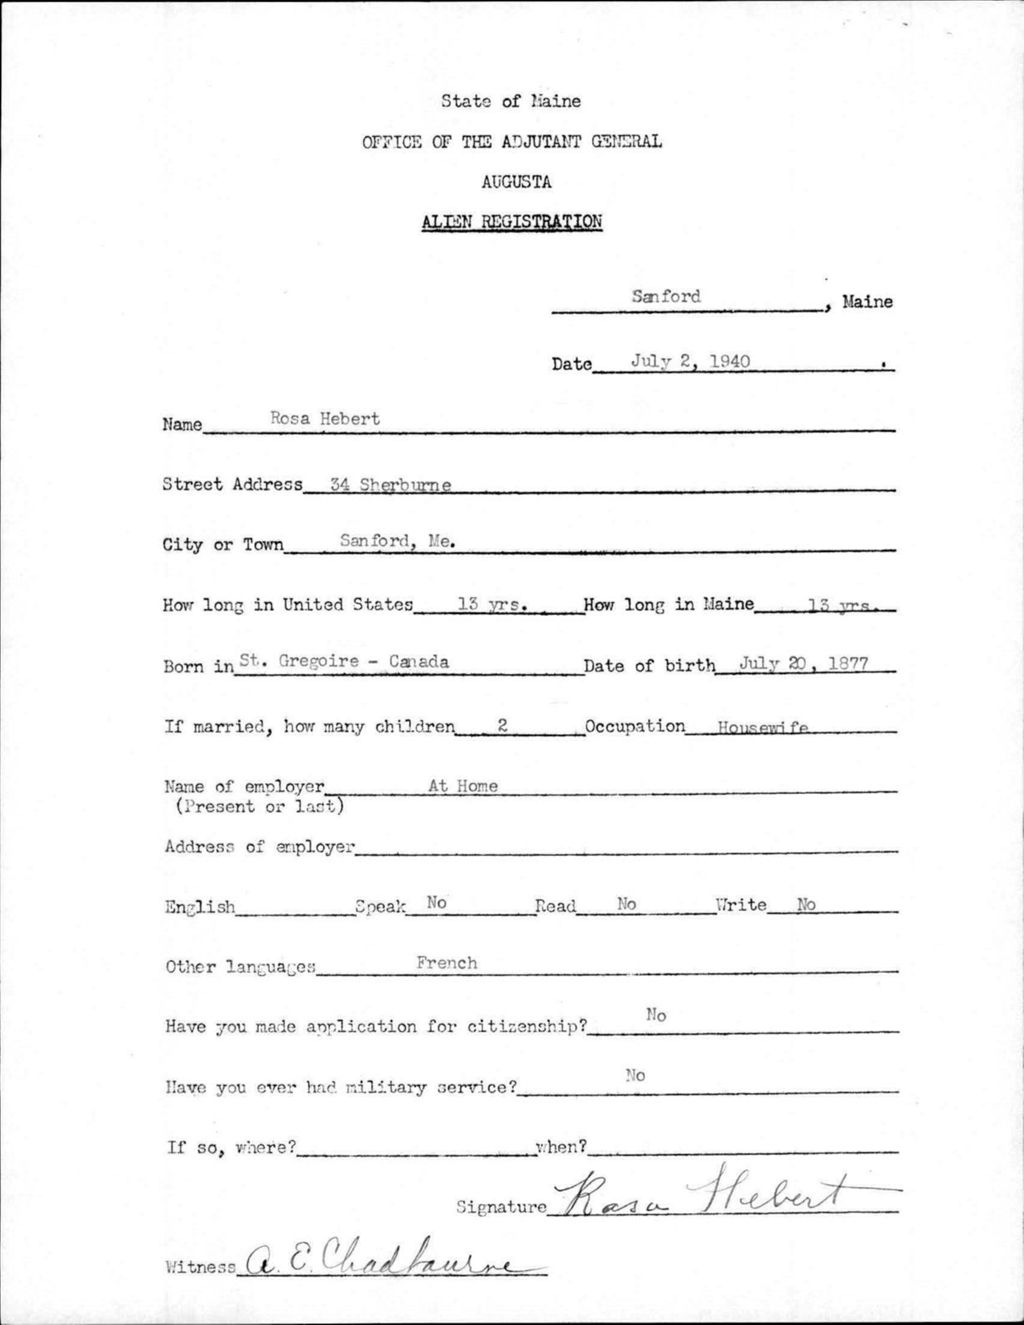 State of Maine
OFFICE OF THE ADJUTANT GENERAL
AUGUSTA
ALIEN REGISTRATION
Sanford, Maine
Date July 2, 1940.
Name Rosa Hebert
Street Address 34 Sherburne
City or Town Sanford, Me.
How long in United States 13 yrs. How long in Maine 13 yrs.
Born in St. Gregoire - Canada Date of birth July 20, 1877
If married, how many children 2 Occupation Housewife
Name of employer At Home
(Present or last)
Address of employer
English Speak No Read No Write No
Other languages French
Have you made application for citizenship? No
Have you ever had military service? No
If so, where? when?
Signature Rosa Hebert
Witness A. E. Chadbourne